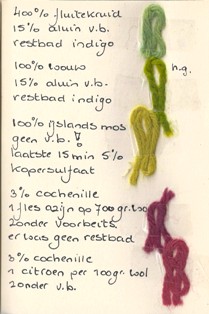 400% fluitekruid
15% aluin v.b.
restbad indigo
100% wouw
h.g.
15% aluin v.b.
restbad indigo
100% ijslands mos
geen v.b. !
laatste 15 min 5%
kopersulfaat
3% cochenille
1 fles azijn op 700 gr. wol
zonder voorbeits,
er was geen restbad
8% cochenille
1 citroen per 100gr. wol
zonder v.b.